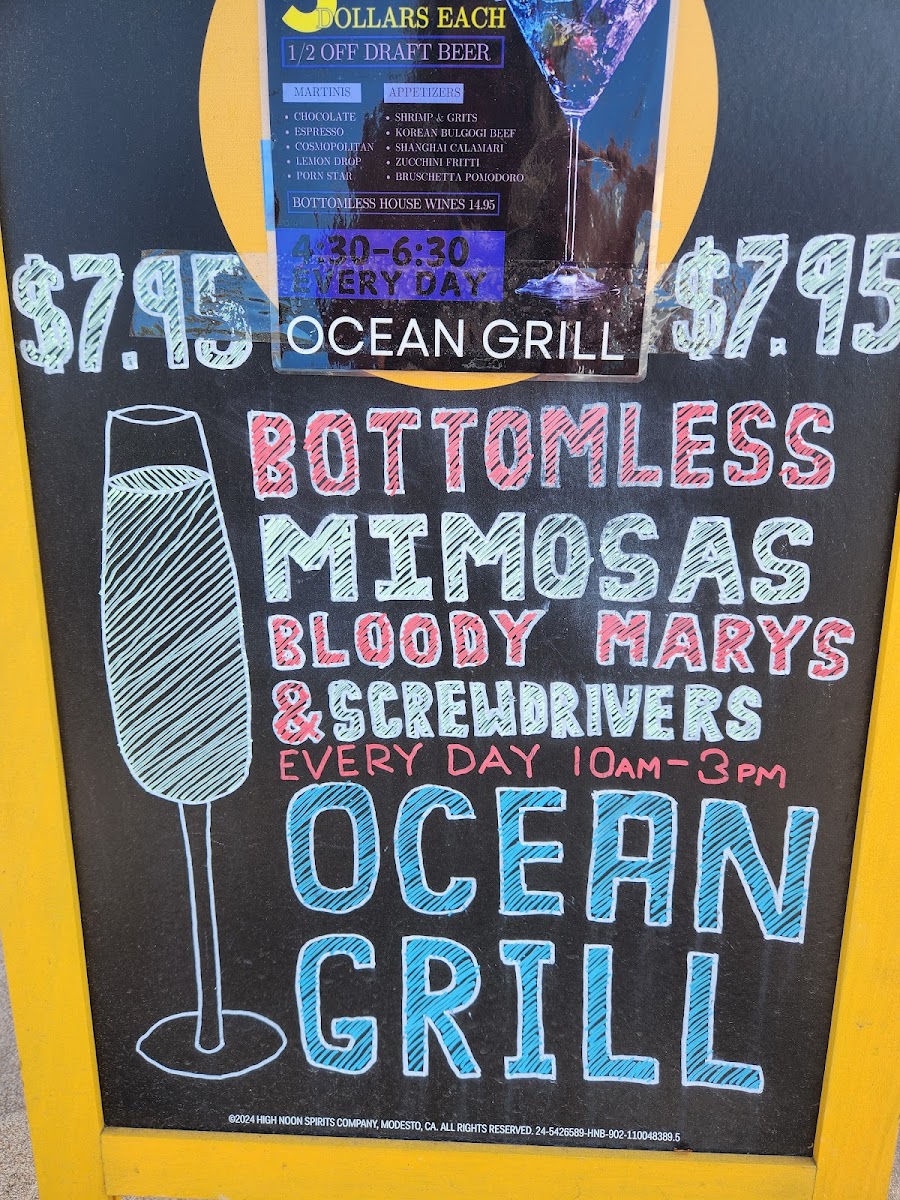 DOLLARS EACH
1/2 OFF DRAFT BEER
MARTINIS
• CHOCOLATE
• ESPRESSO
• COSMOPOLITAN
• LEMON DROP
• PORN STAR
APPETIZERS
• SHRIMP & GRITS
• KOREAN BULGOGI BEEF
• SHANGHAI CALAMARI
• ZUCCHINI FRITTI
• BRUSCHETTA POMODORO
BOTTOMLESS HOUSE WINES 14.95
4:30-6:30
EVERY DAY
OCEAN GRILL
$7.95 $7.95
BOTTOMLESS
MIMOSAS
BLOODY MARYS
& SCREWDRIVERS
EVERY DAY 10AM-3PM
OCEAN
GRILL
©2024 HIGH NOON SPIRITS COMPANY, MODESTO, CA. ALL RIGHTS RESERVED. 24-5426589-HNB-902-110048389.5